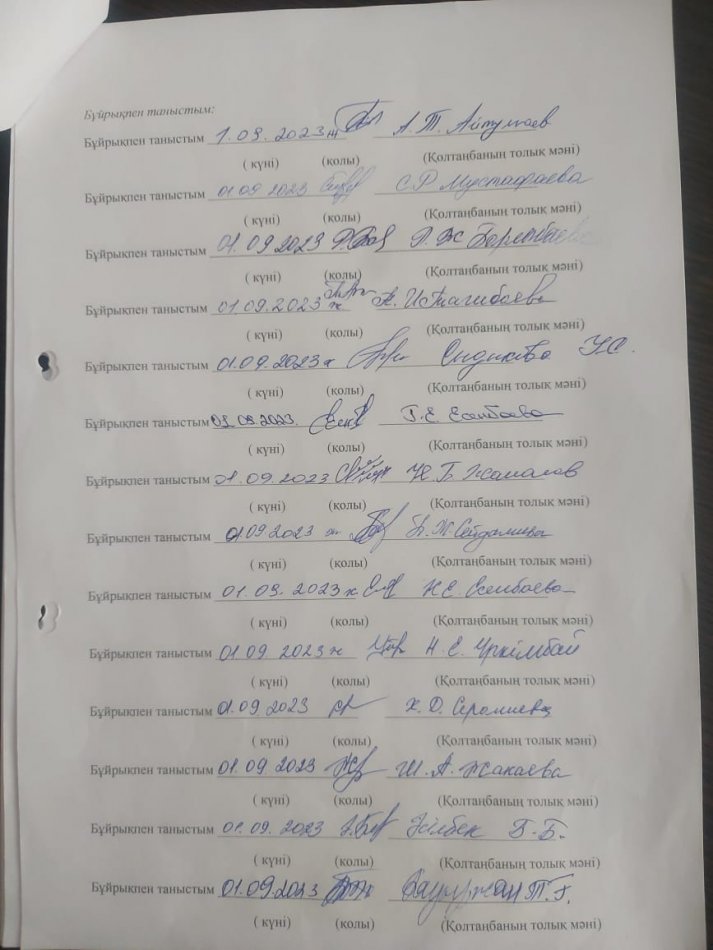 Бұйрықпен таныстым:
Бұйрықпен таныстым 1.09.2023ж А.Т.
( күні) (қолы) (Қолтаңбаның толық мәні)
Бұйрықпен таныстым 01.09.2023 С.Р Мустафаева
( күні) (қолы) (Қолтаңбаның толық мәні)
Бұйрықпен таныстым 01.09.2023
( күні) (қолы) (Қолтаңбаның толық мәні)
Бұйрықпен таныстым 01.09.2023 ж
( күні) (қолы) (Қолтаңбаның толық мәні)
Бұйрықпен таныстым 01.09.2023 ж
( күні) (қолы) (Қолтаңбаның толық мәні)
Бұйрықпен таныстым Г.Е. Есенбаева
( күні) (қолы) (Қолтаңбаның толық мәні)
Бұйрықпен таныстым 01.09.2023 Жамалов
( күні) (қолы) (Қолтаңбаның толық мәні)
Бұйрықпен таныстым 01.09.2023 ж
( күні) (қолы) (Қолтаңбаның толық мәні)
Бұйрықпен таныстым 01.09.2023 ж. Есенбаева
( күні) (қолы) (Қолтаңбаның толық мәні)
Бұйрықпен таныстым 01.09.2023 ж Н.Е. Үркімбай
( күні) (қолы) (Қолтаңбаның толық мәні)
Бұйрықпен таныстым 01.09.2023
( күні) (қолы) (Қолтаңбаның толық мәні)
Бұйрықпен таныстым 01.09.2023 Ш.А. Жакаева
( күні) (қолы) (Қолтаңбаның толық мәні)
Бұйрықпен таныстым 01.09.2023 Б.
( күні) (қолы) (Қолтаңбаның толық мәні)
Бұйрықпен таныстым 01.09.2023 Т.Г.
( күні) (қолы) (Қолтаңбаның толық мәні)